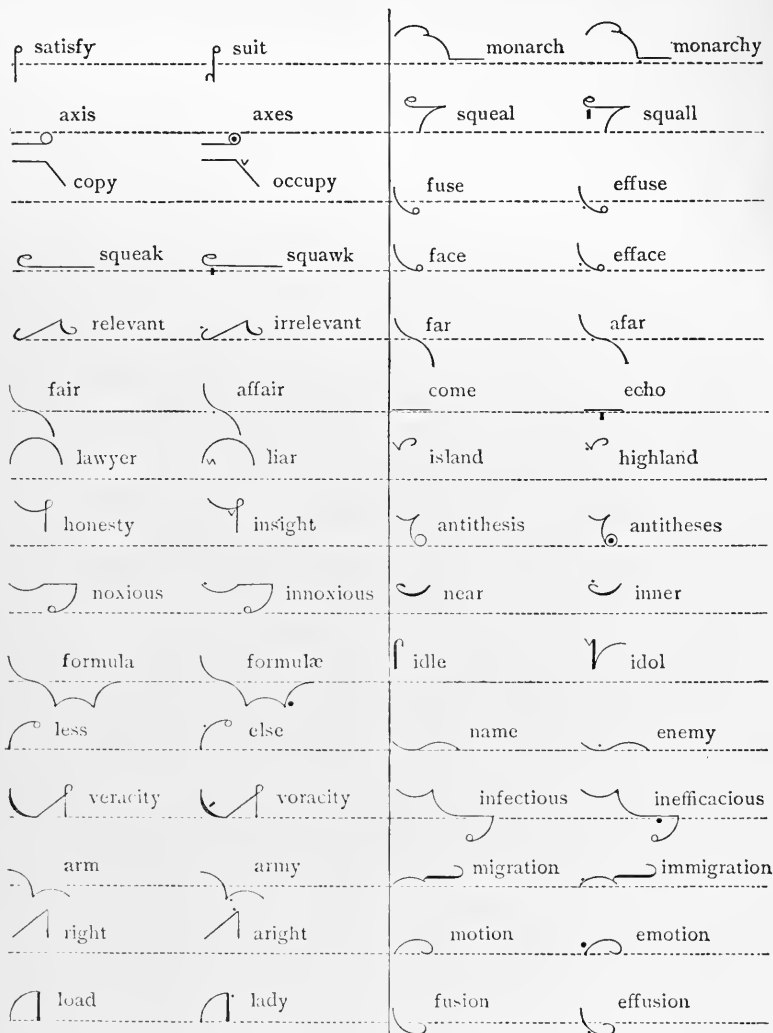 satisfy suit
axis axes
copy occupy
squeak squawk
relevant irrelevant
fair affair
lawyer liar
honesty insight
noxious innoxious
formula formulæ
less else
veracity voracity
arm army
right aright
load lady
monarch monarchy
squeal squall
fuse effuse
face efface
far afar
come echo
island highland
antithesis antitheses
near inner
idle idol
name enemy
infectious inefficacious
migration immigration
motion emotion
fusion effusion